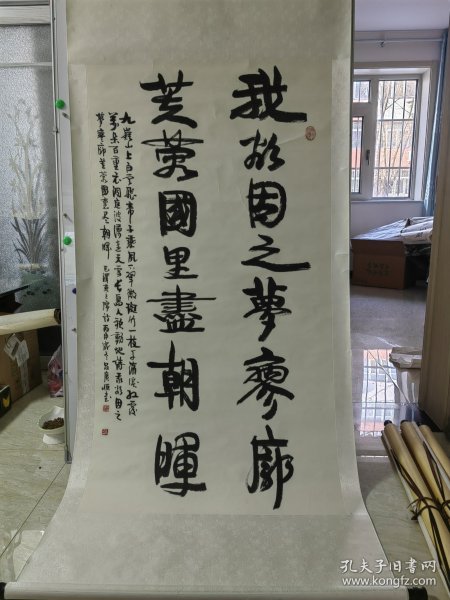 我欲因之夢寥廓
芙蓉國里盡朝暉
九嶷山上白雲飛帝子乘風下翠微斑竹一枝千滴淚紅霞
萬朵百重衣洞庭波湧連天雪長島人歌動地詩我欲因之
夢寥廓芙蓉國里盡朝暉
孔夫子旧书网
www.kongfz.com